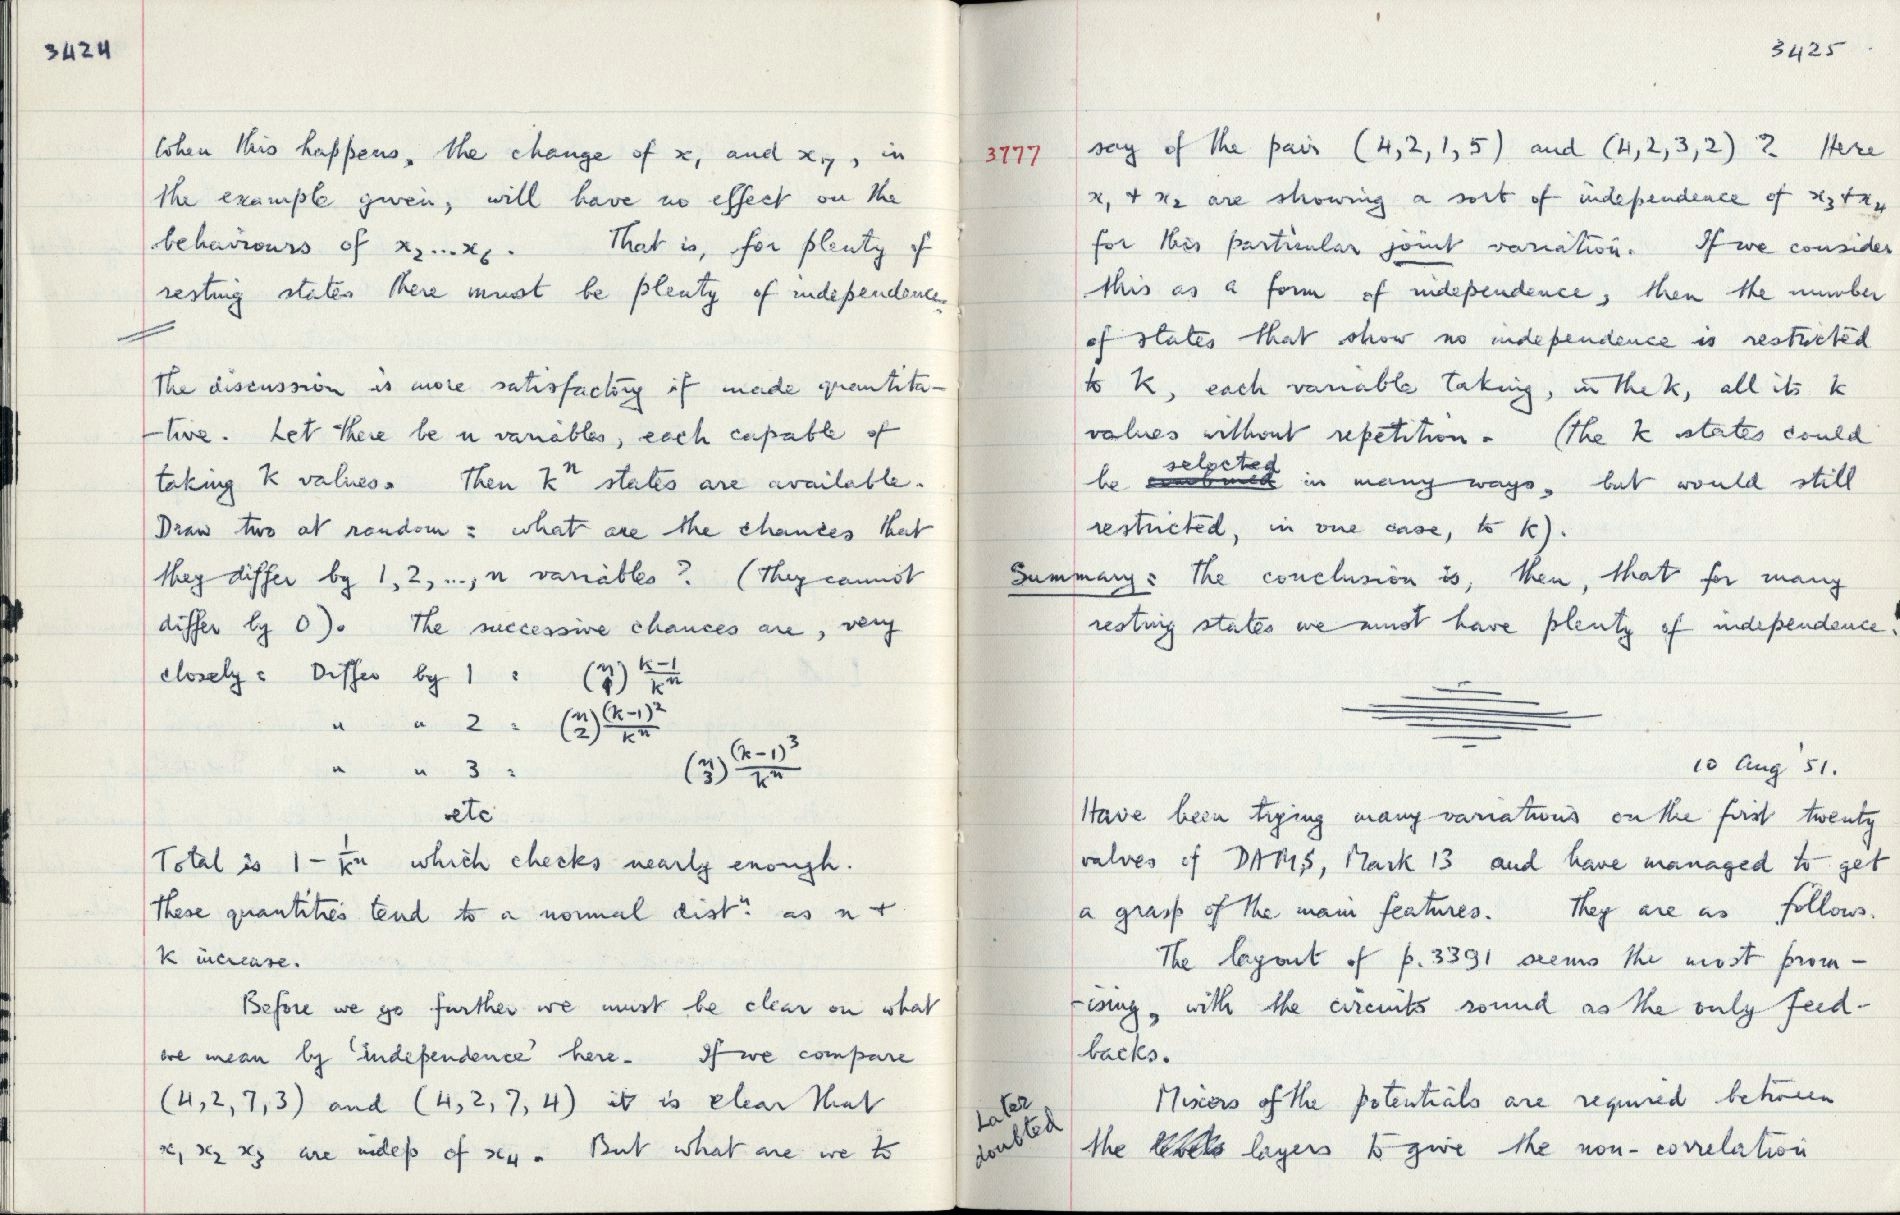 3424
When this happens, the change of x₁ and x₇, in
the example given, will have no effect on the
behaviours of x₂...x₆. That is, for plenty of
resting states there must be plenty of independence.
The discussion is more satisfactory if made quantita-
-tive. Let there be n variables, each capable of
taking k values. Then kⁿ states are available.
Draw two at random: what are the chances that
they differ by 1, 2, ..., n variables? (They cannot
differ by 0). The successive chances are, very
closely: Differ by 1 : (n 1) (k-1)/kⁿ
" " 2 : (n 2) (k-1)²/kⁿ
" " 3 : (n 3) (k-1)³/kⁿ
etc
Total is 1 - 1/kⁿ which checks nearly enough.
These quantities tend to a normal distⁿ. as n +
k increase.
Before we go further we must be clear on what
we mean by 'independence' here. If we compare
(4,2,7,3) and (4,2,7,4) it is clear that
x₁ x₂ x₃ are indep of x₄. But what are we to
3425
3777
say of the pair (4,2,1,5) and (4,2,3,2)? Here
x₁ + x₂ are showing a sort of independence of x₃ + x₄
for this particular joint variation. If we consider
this as a form of independence, then the number
of states that show no independence is restricted
to k, each variable taking, in the k, all its k
values without repetition. (The k states could
be selected in many ways, but would still
restricted, in one case, to k).
Summary: The conclusion is, then, that for many
resting states we must have plenty of independence.
10 Aug '51.
Have been trying many variations on the first twenty
valves of DAMS, Mark 13 and have managed to get
a grasp of the main features. They are as follows.
The layout of p.3391 seems the most prom-
-ising, with the circuits round as the only feed-
backs.
Later
doubted
Mixers of the potentials are required between
the layers to give the non-correlation